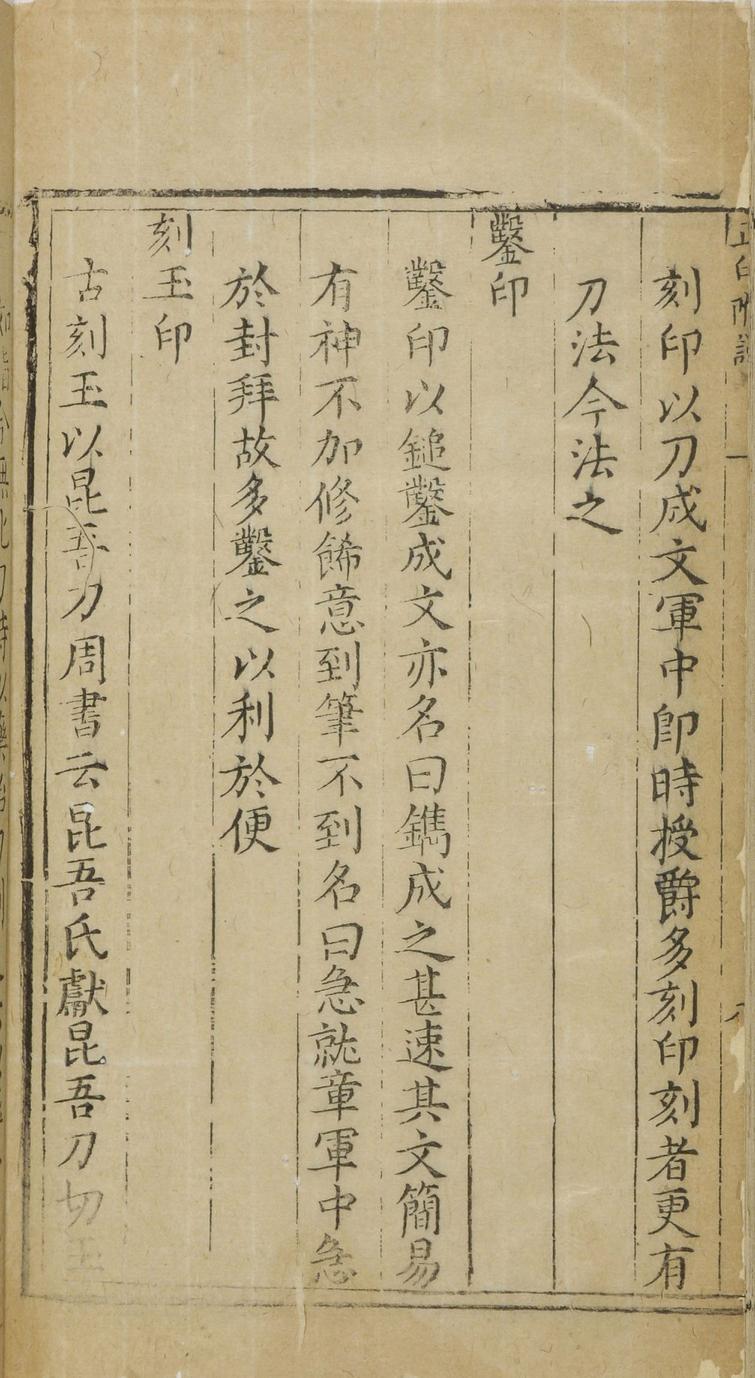 刻印以刀成文軍中卽時授爵多刻印刻者更有
刀法今法之
鑿印
鑿印以鎚鑿成文亦名曰鐫成之甚速其文簡易
有神不加修餙意到筆不到名曰急就章軍中急
於封拜故多鑿之以利於便
刻玉印
古刻玉以昆吾刀周書云昆吾氏獻昆吾刀切玉